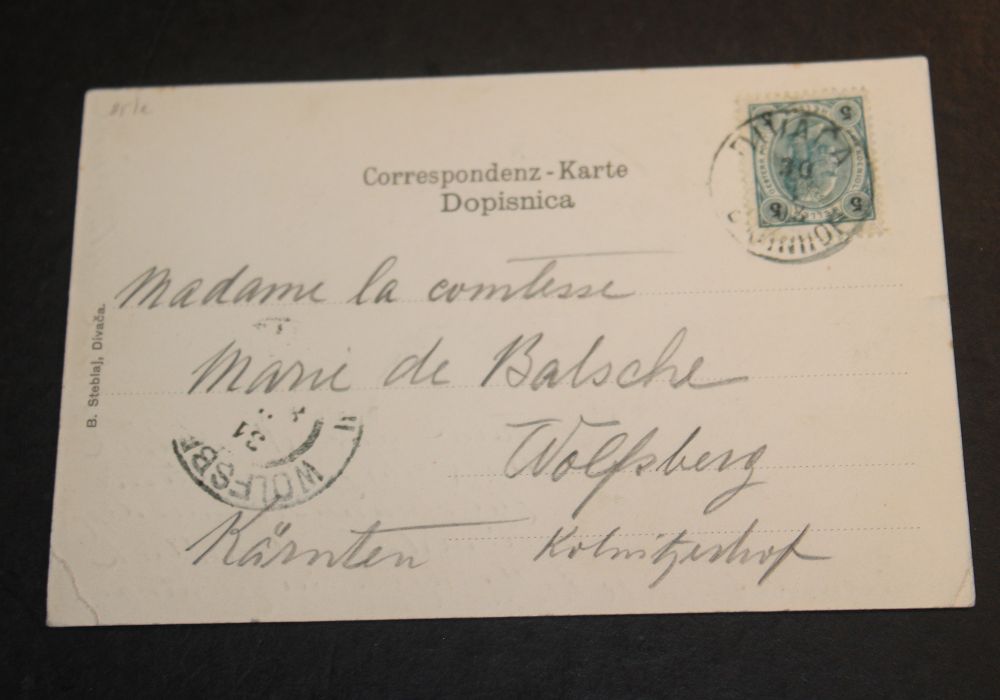 Correspondenz-Karte
Dopisnica
DIVAČA
5
5
5
Madame la comtesse
Marie de Balsche
Wolfsberg
Kärnten Kolnitzerhof
B. Steblaj, Divača.
WOLFSBE
31